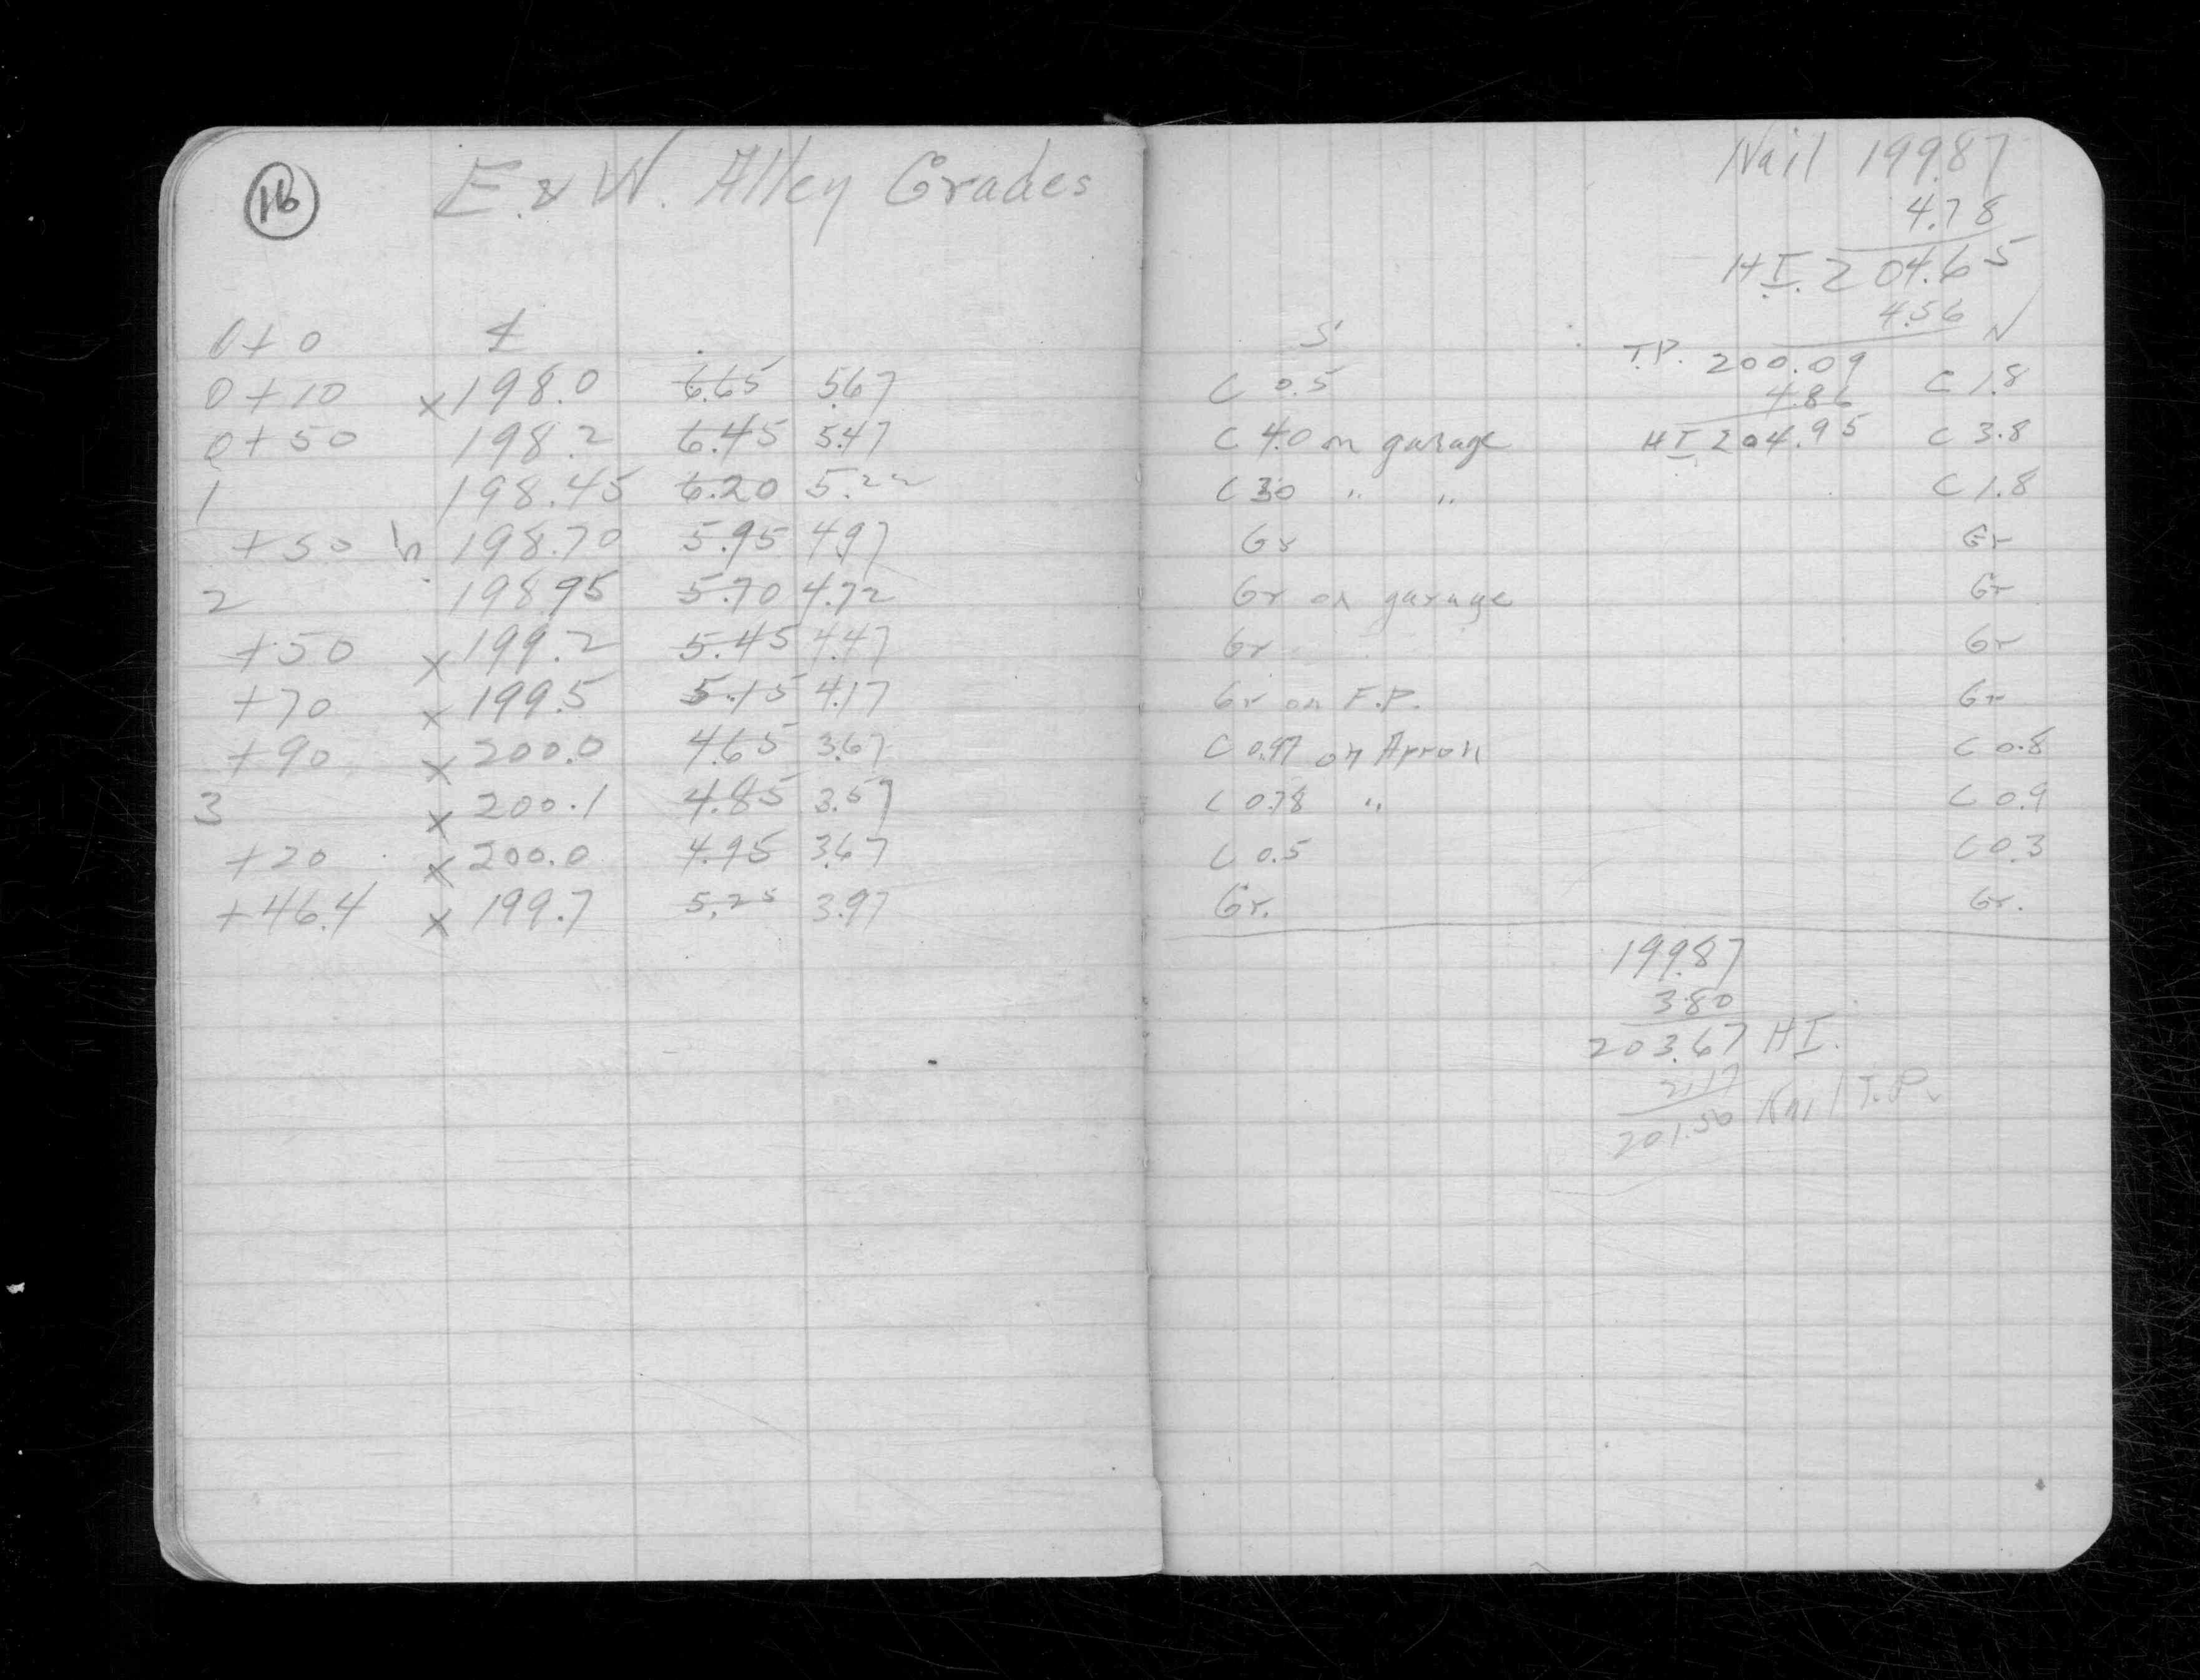 16
E. & W. Alley Grades
0+0 ℄
0+10 x 198.0 6.65 5.67
0+50 198.2 6.45 5.47
1 198.45 6.20 5.22
+50 198.70 5.95 4.97
2 198.95 5.70 4.72
+50 x 199.2 5.45 4.47
+70 x 199.5 5.15 4.17
+90 x 200.0 4.65 3.67
3 x 200.1 4.85 3.57
+20 x 200.0 4.95 3.67
+46.4 x 199.7 5.25 3.97
Nail 199.87
4.78
H I. 204.65
4.56
S N
T.P. 200.09
C 0.5 4.86 C 1.8
C 4.0 on garage H I 204.95 C 3.8
C 3.0 " " C 1.8
Gr Gr
Gr on garage Gr
Gr Gr
Gr on F.P. Gr
C 0.97 on Apron C 0.8
C 0.78 " C 0.9
C 0.5 C 0.3
Gr. Gr.
199.87
3.80
203.67 H I.
2.17
201.50 Nail T.P.